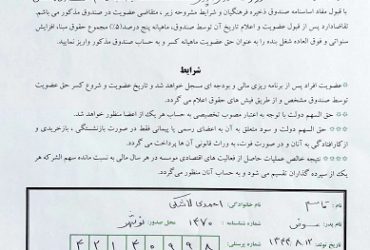 با قبول مفاد اساسنامه صندوق ذخیره فرهنگیان و شرایط مشروحه زیر ، متقاضی عضویت در صندوق مذکور می باشم.
تقاضا دارد پس از قبول عضویت و اعلام تاریخ آن توسط صندوق، ماهیانه پنج درصد(۵٪) مجموع حقوق مبنا، افزایش
سنواتی و فوق العاده شغل بنده را به عنوان حق عضویت ماهیانه کسر و به حساب صندوق مذکور واریز نمایید.
شرایط
عضویت افراد پس از برنامه ریزی مالی و بودجه ای مسجل خواهد شد و تاریخ عضویت و شروع کسر حق عضویت
توسط صندوق مشخص و از طریق فیش های حقوق اعلام می گردد.
حق السهم دولت با توجه به اعتبار مصوب تخصیصی به حساب هر یک از اعضا منظور خواهد شد.
حق السهم دولت و سود متعلق به آن به اعضای رسمی یا پیمانی فقط در صورت بازنشستگی ، بازخریدی و
ازکارافتادگی به آنان و در صورت فوت، به وراث قانونی آن ها پرداخت می گردد.
نتیجه خالص عملیات حاصل از فعالیت های اقتصادی موسسه در هر سال مالی به نسبت مانده سهم الشرکه هر
یک از سپرده گذاران تقسیم می شود و به حساب آنان منظور خواهد گردید.
نام : قاسم نام خانوادگی: احمدی لاشکی
نام پدر: شماره شناسنامه : ۱۴۷۰ محل صدور: نوشهر
تاریخ تولد: ۱۳۴۴/۸/۱۲ شماره پرسنلی: ۴۲۱۴۰۹۹۸